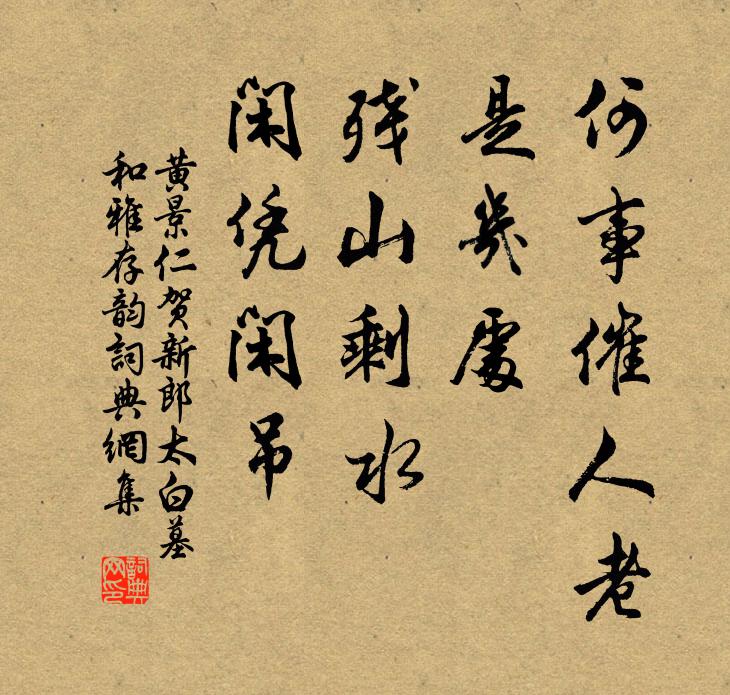 何事催人老
是幾處
残山剩水
闲凭闲吊
黄景仁贺新郎太白墓
和雅存韵詞典網集
詞典网印